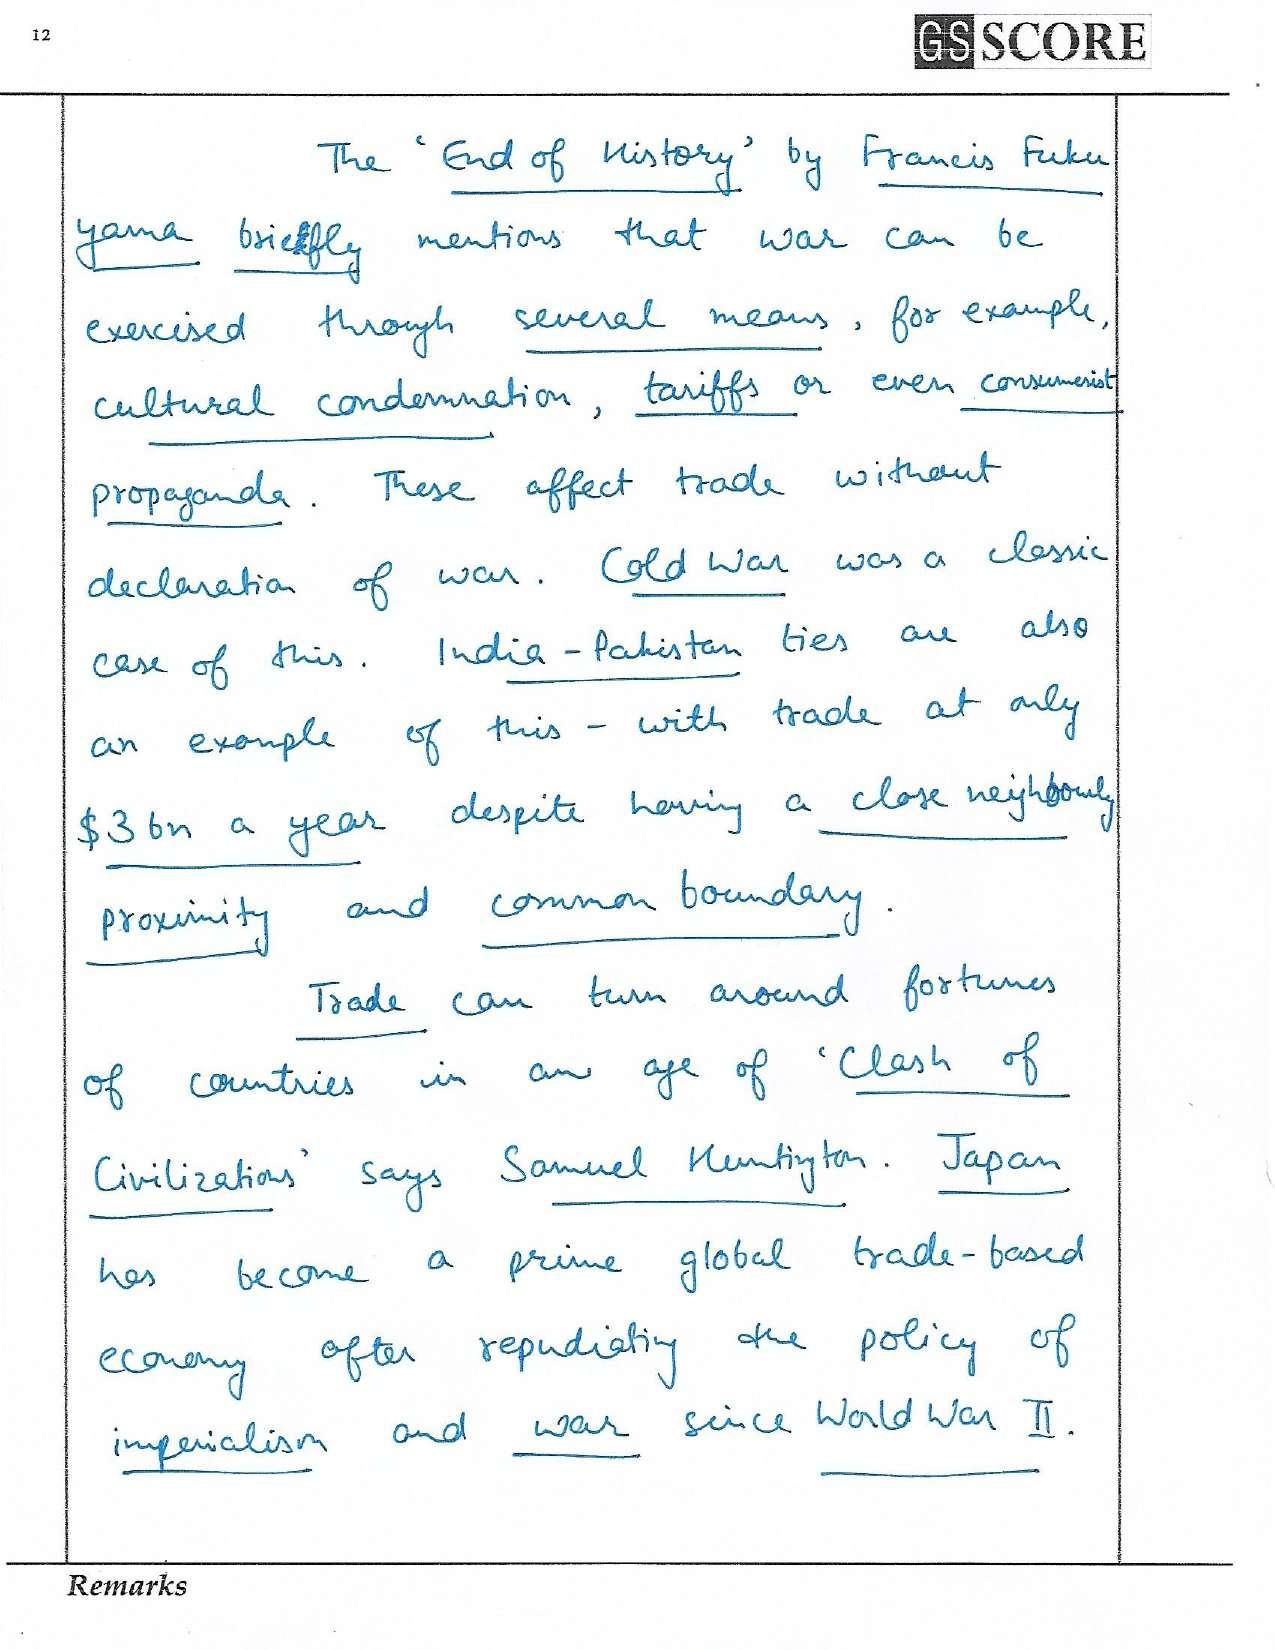 12
GS SCORE
The 'End of History' by Francis Fuku
yama briefly mentions that war can be
exercised through several means, for example,
cultural condemnation, tariffs or even consumerist
propaganda. These affect trade without
declaration of war. Cold War was a classic
case of this. India-Pakistan ties are also
an example of this - with trade at only
$3 bn a year despite having a close neighbourly
proximity and common boundary.
Trade can turn around fortunes
of countries in an age of 'Clash of
Civilizations' says Samuel Huntington. Japan
has become a prime global trade-based
economy after repudiating the policy of
imperialism and war since World War II.
Remarks